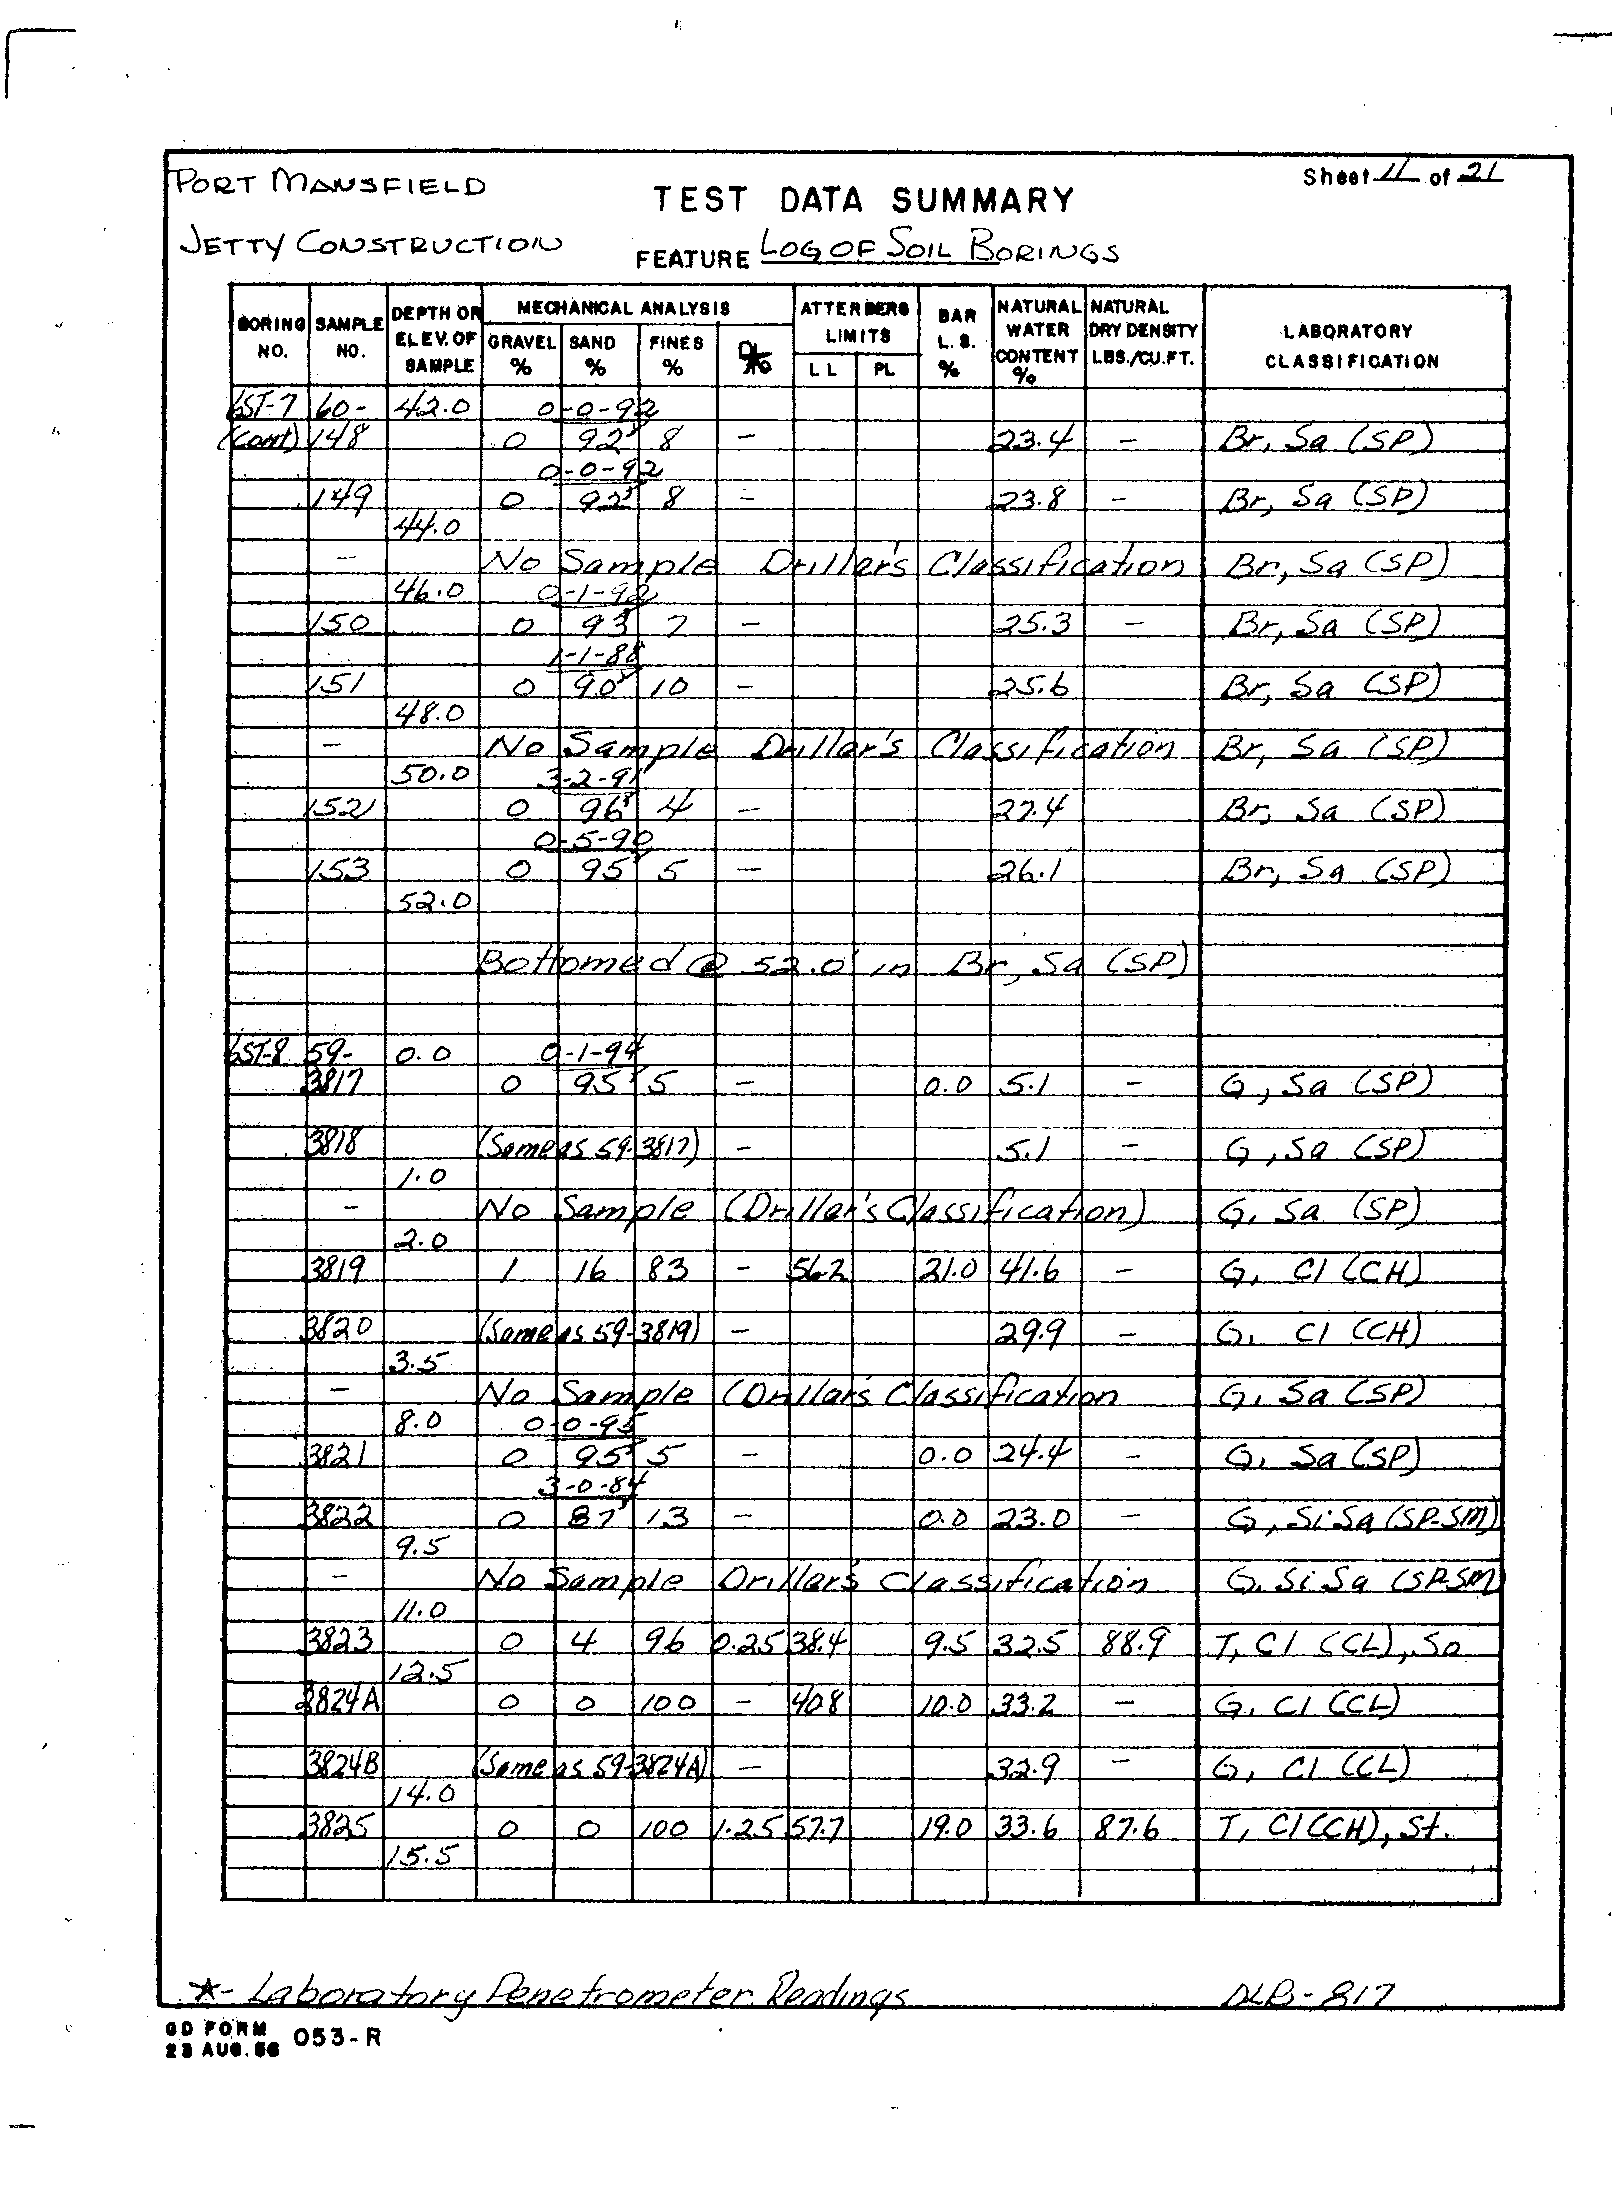 PORT MANSFIELD
Sheet 11 of 21
TEST DATA SUMMARY
JETTY CONSTRUCTION
FEATURE LOG OF SOIL BORINGS
BORING NO. SAMPLE NO. DEPTH OR ELEV. OF SAMPLE MECHANICAL ANALYSIS GRAVEL % SAND % FINES % * ATTERBERG LIMITS LL PL BAR L.S. % NATURAL WATER CONTENT % NATURAL DRY DENSITY LBS./CU.FT. LABORATORY CLASSIFICATION
6ST-7 60- 42.0 0-0-92
(Cont) 148 0 92 8 - 23.4 - Br, Sa (SP)
0-0-92
149 0 92 8 - 23.8 - Br, Sa (SP)
44.0
- No Sample Driller's Classification Br, Sa (SP)
46.0 0-1-92
150 0 93 7 - 25.3 - Br, Sa (SP)
1-1-88
151 0 90 10 - 25.6 Br, Sa (SP)
48.0
- No Sample Driller's Classification Br, Sa (SP)
50.0 3-2-91
152 0 96 4 - 27.4 Br, Sa (SP)
0-5-90
153 0 95 5 - 26.1 Br, Sa (SP)
52.0
Bottomed @ 52.0' in Br, Sa (SP)
6ST-8 59- 0.0 0-1-94
3817 0 95 5 - 0.0 5.1 - G, Sa (SP)
3818 (Same as 59-3817) - 5.1 - G, Sa (SP)
1.0
- No Sample (Driller's Classification) G, Sa (SP)
2.0
3819 1 16 83 - 56.2 21.0 41.6 - G, Cl (CH)
3820 (Same as 59-3819) - 29.9 - G, Cl (CH)
3.5
- No Sample (Driller's Classification G, Sa (SP)
8.0 0-0-95
3821 0 95 5 - 0.0 24.4 - G, Sa (SP)
3-0-84
3822 0 87 13 - 0.0 23.0 - G, Si Sa (SP-SM)
9.5
- No Sample Driller's Classification G, Si Sa (SP-SM)
11.0
3823 0 4 96 0.25 38.4 9.5 32.5 88.9 T, Cl (CL), So
12.5
3824A 0 0 100 - 40.8 10.0 33.2 - G, Cl (CL)
3824B (Same as 59-3824A) - 32.9 - G, Cl (CL)
14.0
3825 0 0 100 1.25 57.7 19.0 33.6 87.6 T, Cl (CH), St.
15.5
*- Laboratory Penetrometer Readings DLB-817
GD FORM
23 AUG. 56 053-R